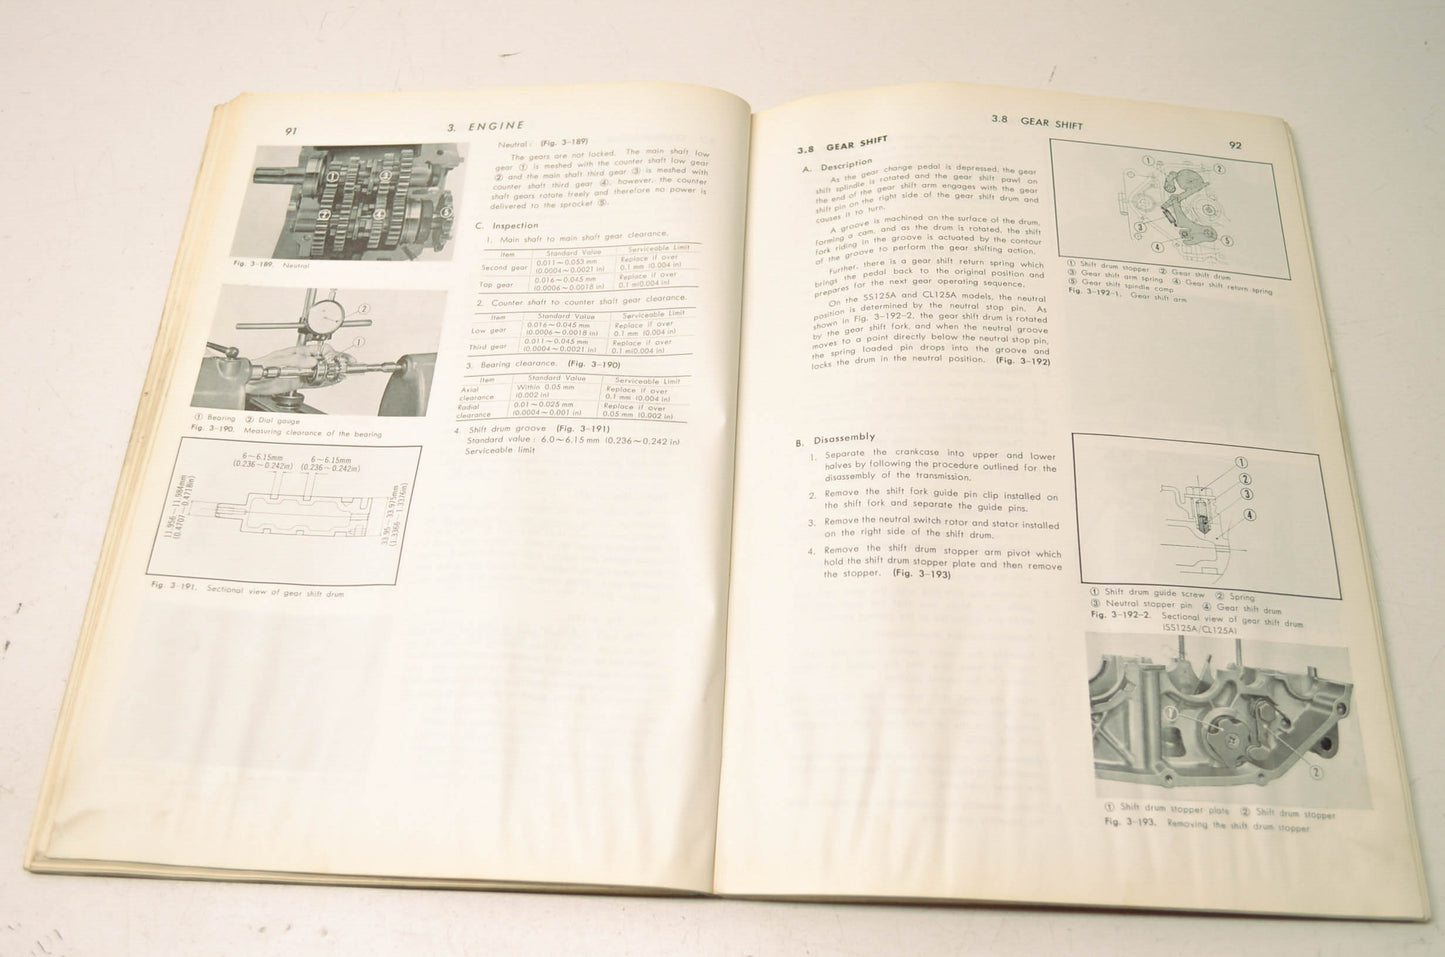 91
3. ENGINE
①
②
③
④
⑤
Fig. 3-189. Neutral
②
①
① Bearing ② Dial gauge
Fig. 3-190. Measuring clearance of the bearing
6~6.15mm 6~6.15mm
(0.236~0.242in) (0.236~0.242in)
11.956~11.984mm
(0.4707~0.4718in)
33.95~33.975mm
(1.3366~1.3376in)
Fig. 3-191. Sectional view of gear shift drum
Neutral: (Fig. 3-189)
The gears are not locked. The main shaft low
gear ① is meshed with the counter shaft low gear
② and the main shaft third gear ③ is meshed with
counter shaft third gear ④, however, the counter
shaft gears rotate freely and therefore no power is
delivered to the sprocket ⑤.
C. Inspection
1. Main shaft to main shaft gear clearance.
Item Standard Value Serviceable Limit
Second gear 0.011~0.053 mm Replace if over
(0.0004~0.0021 in) 0.1 mm (0.004 in)
Top gear 0.016~0.045 mm Replace if over
(0.0006~0.0018 in) 0.1 m(0.004 in)
2. Counter shaft to counter shaft gear clearance.
Item Standard Value Serviceable Limit
Low gear 0.016~0.045 mm Replace if over
(0.0006~0.0018 in) 0.1 mm (0.004 in)
Third gear 0.011~0.045 mm Replace if over
(0.0004~0.0021 in) 0.1 m(0.004 in)
3. Bearing clearance. (Fig. 3-190)
Item Standard Value Serviceable Limit
Axial Within 0.05 mm Replace if over
clearance (0.002 in) 0.1 mm (0.004 in)
Radial 0.01~0.025 mm Replace if over
clearance (0.0004~0.001 in) 0.05 mm (0.002 in)
4. Shift drum groove (Fig. 3-191)
Standard value: 6.0~6.15 mm (0.236~0.242 in)
Serviceable limit
3.8 GEAR SHIFT
92
3.8 GEAR SHIFT
A. Description
As the gear change pedal is depressed, the gear
shift splindle is rotated and the gear shift pawl on
the end of the gear shift arm engages with the gear
shift pin on the right side of the gear shift drum and
causes it to turn.
A groove is machined on the surface of the drum,
forming a cam, and as the drum is rotated, the shift
fork riding in the groove is actuated by the contour
of the groove to perform the gear shifting action.
Further, there is a gear shift return spring which
brings the pedal back to the original position and
prepares for the next gear operating sequence.
On the SS125A and CL125A models, the neutral
position is determined by the neutral stop pin. As
shown in Fig. 3-192-2, the gear shift drum is rotated
by the gear shift fork, and when the neutral groove
moves to a point directly below the neutral stop pin,
the spring loaded pin drops into the groove and
locks the drum in the neutral position. (Fig. 3-192)
B. Disassembly
1. Separate the crankcase into upper and lower
halves by following the procedure outlined for the
disassembly of the transmission.
2. Remove the shift fork guide pin clip installed on
the shift fork and separate the guide pins.
3. Remove the neutral switch rotor and stator installed
on the right side of the shift drum.
4. Remove the shift drum stopper arm pivot which
hold the shift drum stopper plate and then remove
the stopper. (Fig. 3-193)
①
②
③
④
⑤
① Shift drum stopper ② Gear shift drum
③ Gear shift arm spring ④ Gear shift return spring
⑤ Gear shift spindle comp
Fig. 3-192-1. Gear shift arm
①
②
③
④
① Shift drum guide screw ② Spring
③ Neutral stopper pin ④ Gear shift drum
Fig. 3-192-2. Sectional view of gear shift drum
(SS125A/CL125A)
①
②
① Shift drum stopper plate ② Shift drum stopper
Fig. 3-193. Removing the shift drum stopper